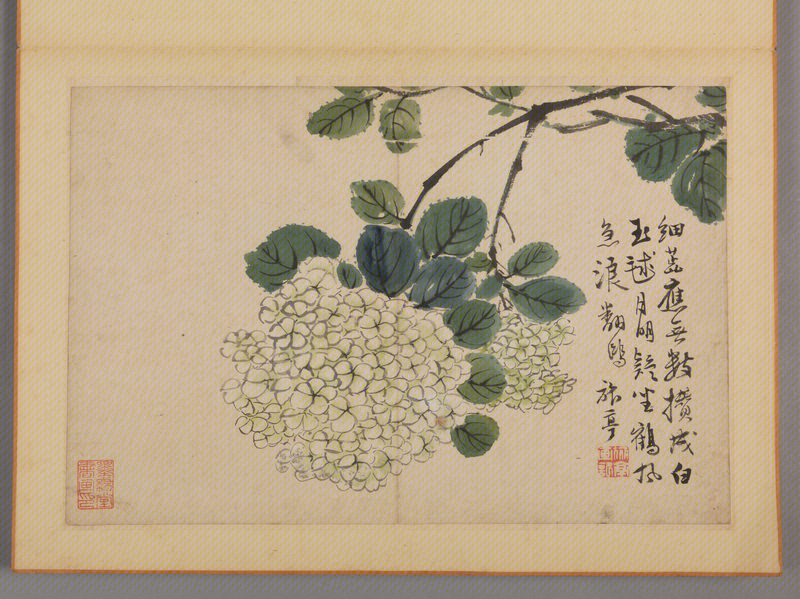 細蕊應無數攢成白
玉毬月明疑坐鶴風
急浪翻鷗 亭